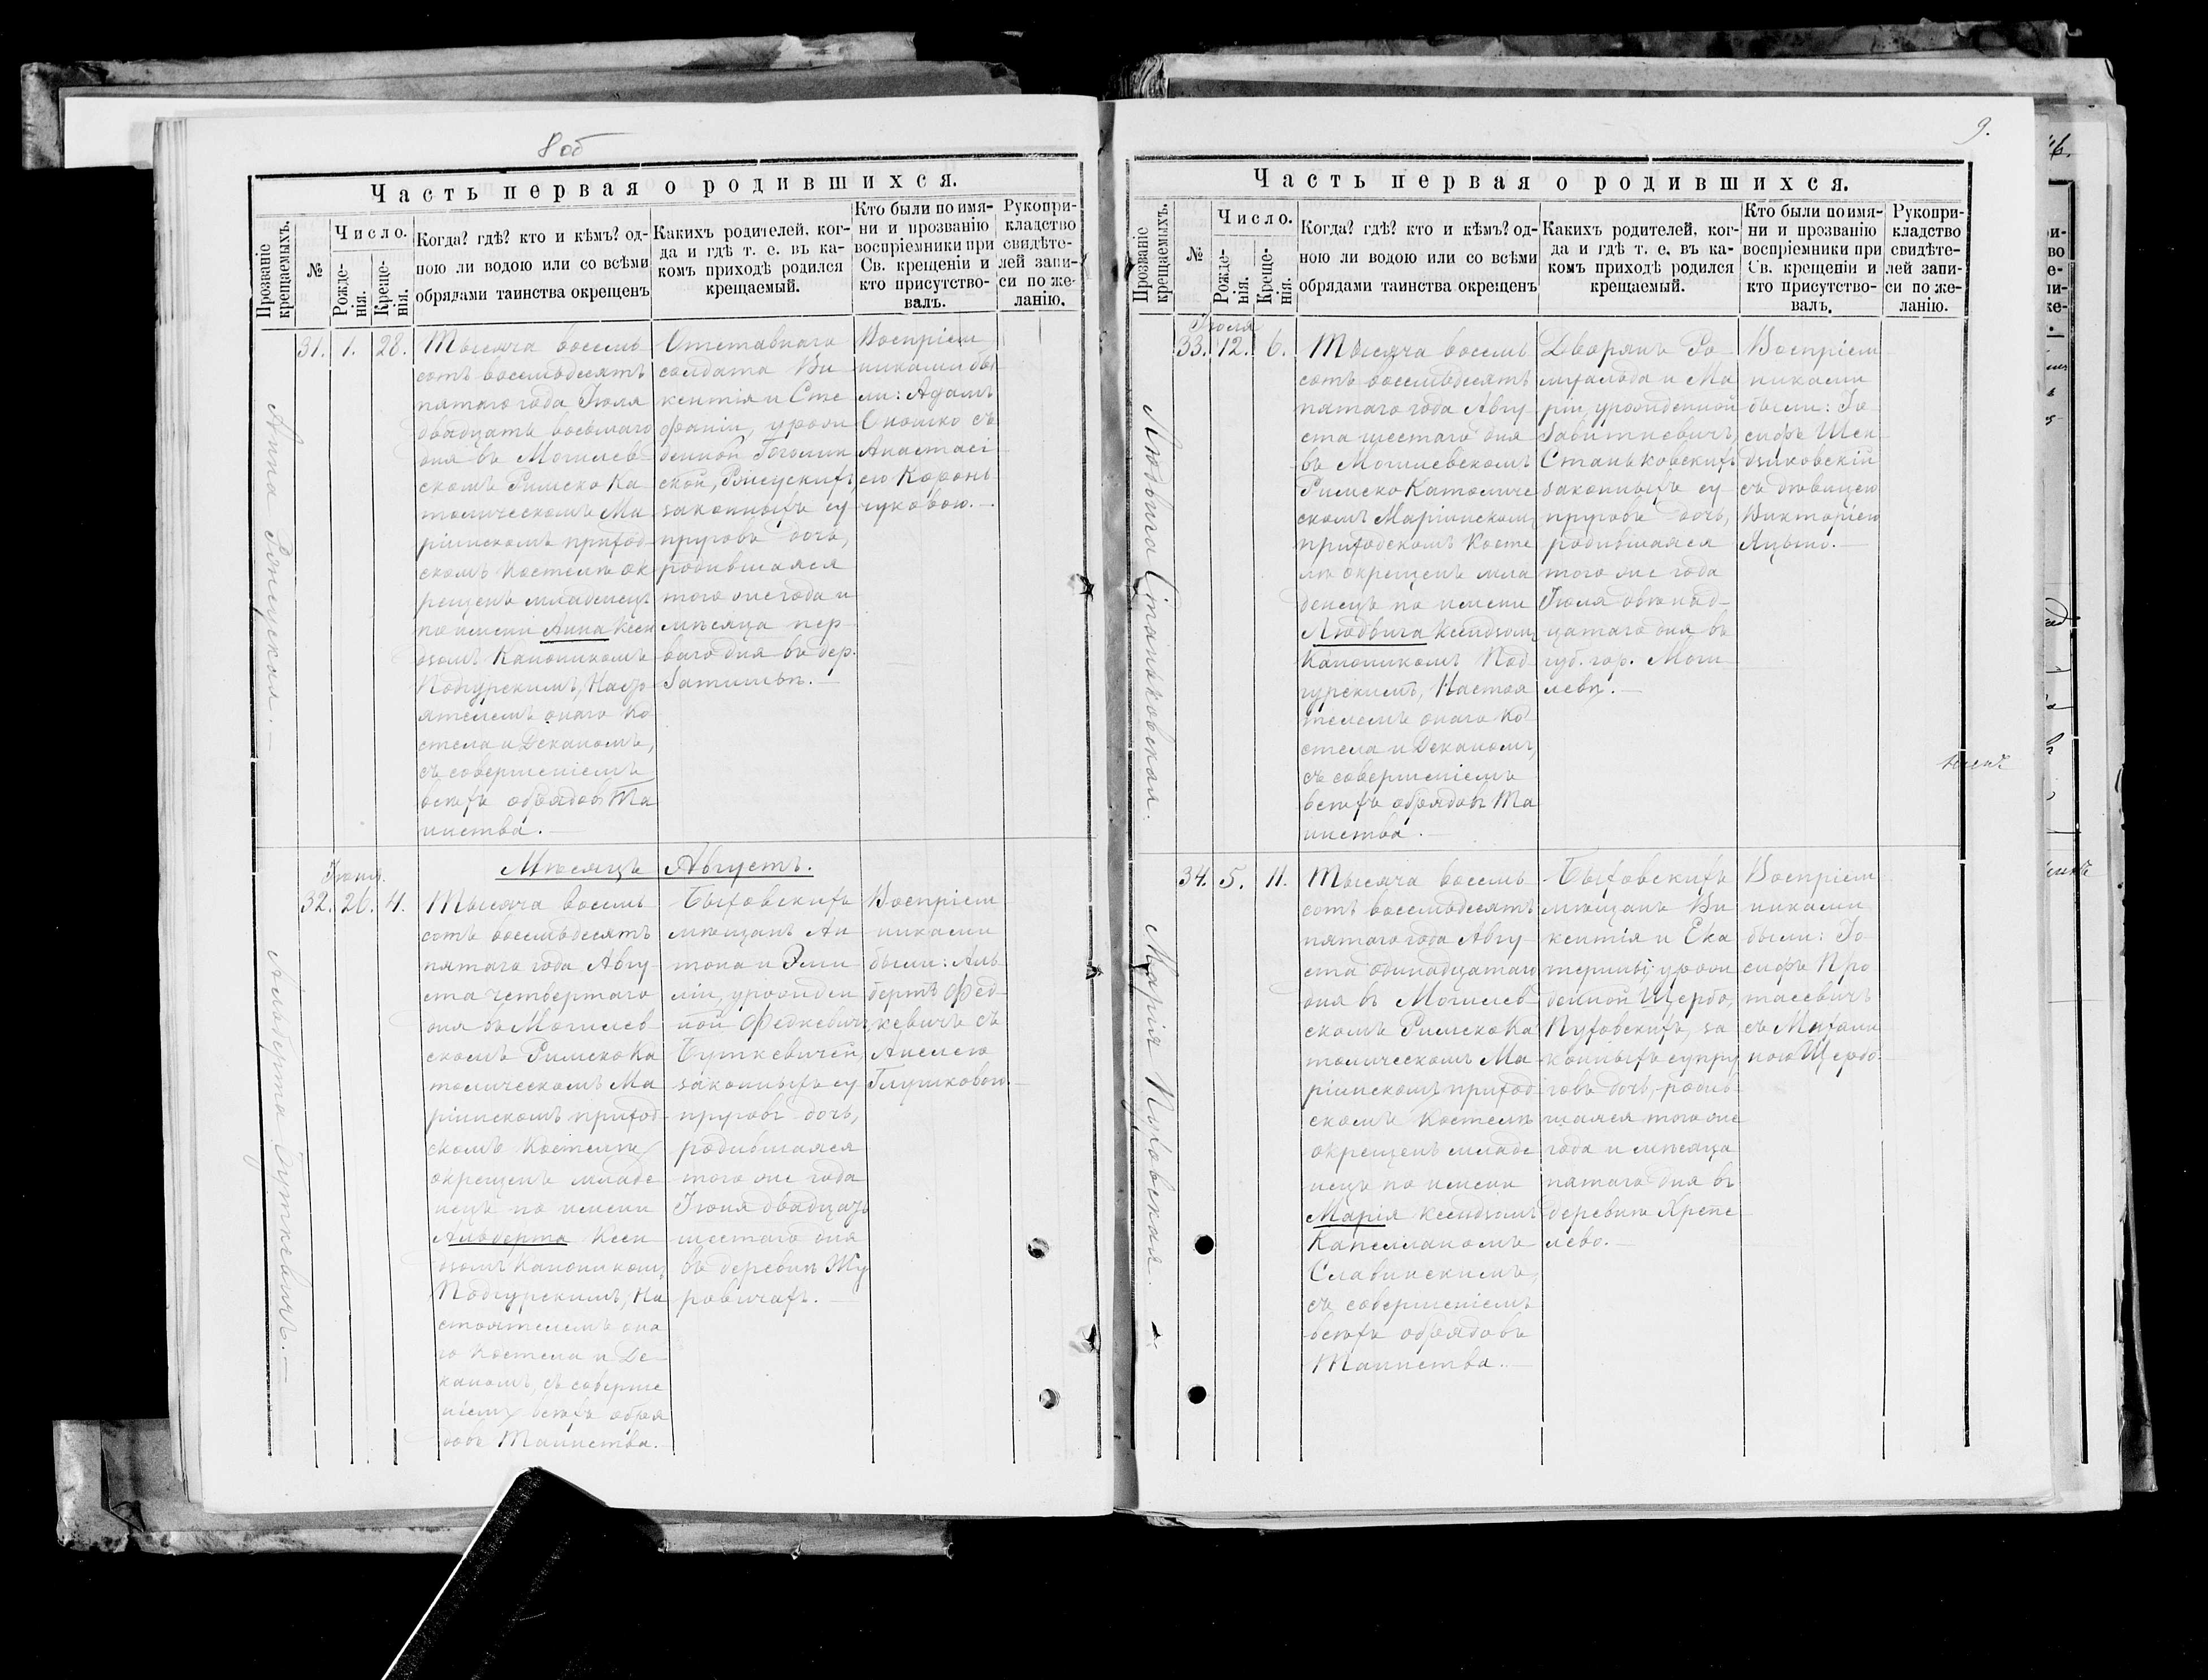 8 об
Часть первая о родившихся.
Прозваніе крещаемыхъ.
№
Число.
Рожде-
нія.
Креще-
нія.
Когда? гдѣ? кто и кѣмъ? од-
ною ли водою или со всѣми
обрядами таинства окрещенъ
Какихъ родителей, ког-
да и гдѣ т. е. въ ка-
комъ приходѣ родился
крещаемый.
Кто были по имя-
ни и прозванію
воспріемники при
Св. крещеніи и
кто присутство-
валъ.
Рукопри-
кладство
свидѣте-
лей запи-
си по же-
ланію.
31. 1. 28.
Тысяча восемь
сотъ восемьдесятъ
пятаго года Іюля
двадцать восьмаго
дня въ Могилев-
скомъ Римско Ка
толическомъ Ма
ріинскомъ приход-
скомъ костелѣ ок
рещенъ младенецъ
по имени Анна Ксен
дзомъ Каноникомъ
Подгурскимъ, Насто
ятелемъ онаго Ко
стела и Деканомъ,
съ совершеніемъ
всѣхъ обрядовъ Та
инства.
Отставнаго
солдата Ви
кентія и Сте
фаніи, урож
денной
законныхъ су
пруговъ дочь,
родившаяся
того же года и
мѣсяца пер-
ваго дня въ дер.
Затишьѣ.
Воспріем
никами бы
ли: Адамъ
съ
Анастасі
ею Корень
чуковою.
Мѣсяцъ Августъ.
Іюня
32. 26. 4.
Альберта Буткевичъ.
Тысяча восемь
сотъ восемьдесятъ
пятаго года Авгу
ста четвертаго
дня въ Могилев
скомъ Римско Ка
толическомъ Ма
ріинскомъ приход
скомъ Костелѣ
окрещенъ младе
нецъ по имени
Альберта Ксен
дзомъ Каноникомъ
Подгурскимъ, На
стоятелемъ она
го Костела и Де
каномъ, съ соверше
ніемъ всѣхъ обря
довъ Таинства.
Быховскихъ
мѣщанъ Ан
тона и Эми
ліи, урожден
ной Федкевичъ
Буткевичей,
законныхъ су
пруговъ дочь,
родившаяся
того же года
Іюня двадцать
шестаго дня
въ деревнѣ Жу
ровичахъ.
Воспріем
никами
были: Аль
бертъ Фед-
кевичъ съ
Анелею
Глушковою.
9.
Часть первая о родившихся.
Прозваніе крещаемыхъ.
№
Число.
Рожде-
нія.
Креще-
нія.
Когда? гдѣ? кто и кѣмъ? од-
ною ли водою или со всѣми
обрядами таинства окрещенъ
Какихъ родителей, ког-
да и гдѣ т. е. въ ка-
комъ приходѣ родился
крещаемый.
Кто были по имя-
ни и прозванію
воспріемники при
Св. крещеніи и
кто присутство-
валъ.
Рукопри-
кладство
свидѣте-
лей запи-
си по же-
ланію.
Іюля
33. 12. 6.
Людвига Станьковская.
Тысяча восемь
сотъ восемьдесятъ
пятаго года Авгу-
ста шестаго дня
въ Могилевскомъ
Римско Католиче
скомъ Маріинскомъ
приходскомъ Косте
лѣ окрещенъ мла
денецъ по имени
Людвига ксендзомъ
Каноникомъ Под
гурскимъ, Настоя
телемъ онаго Ко
стела и Деканомъ,
съ совершеніемъ
всѣхъ обрядовъ Та
инства.
Дворянъ Ро
муальда и Ма
ріи, урожденной
Савитневичъ,
Станьковскихъ
законныхъ су
пруговъ дочь,
родившаяся
того же года
Іюля двѣнад-
цатаго дня въ
губ. гор. Моги
левѣ.
Воспріем
никами
были: Іо
сифъ Шен
съ дѣвицею
Викторіею
34. 5. 11.
Марія Пуховская.
Тысяча восемь
сотъ восемьдесятъ
пятаго года Авгу
ста одинадцатаго
дня въ Могилев
скомъ Римско Ка
толическомъ Ма
ріинскомъ приход
скомъ Костелѣ
окрещенъ младе
нецъ по имени
Марія ксендзомъ
Капелланомъ
Славинскимъ,
съ совершеніемъ
всѣхъ обрядовъ
Таинства.
Быховскихъ
мѣщанъ Ви
кентія и Ека
терины, урож
денной Щербо,
Пуховскихъ, за
конныхъ супру
говъ дочь, родив
шаяся того же
года и мѣсяца
пятаго дня въ
деревнѣ Хрепе
лево.
Воспріем
никами
были: Іо
сифъ Про
тасевичъ
съ Михали
ною Щербо.